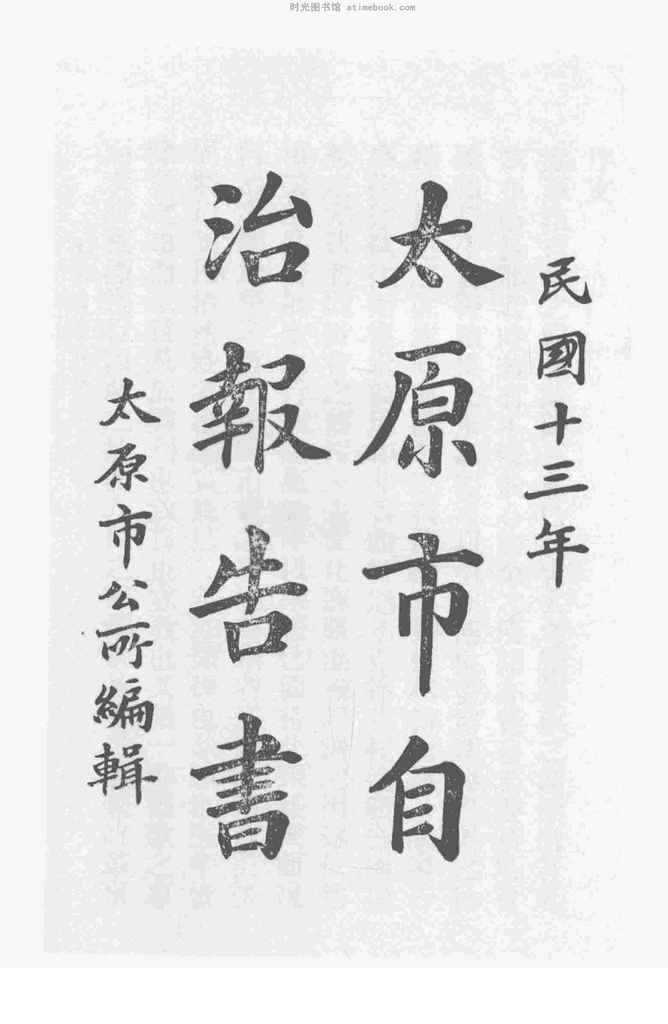 时光图书馆 atimebook.com
民國十三年
太原市自
治報告書
太原市公所編輯